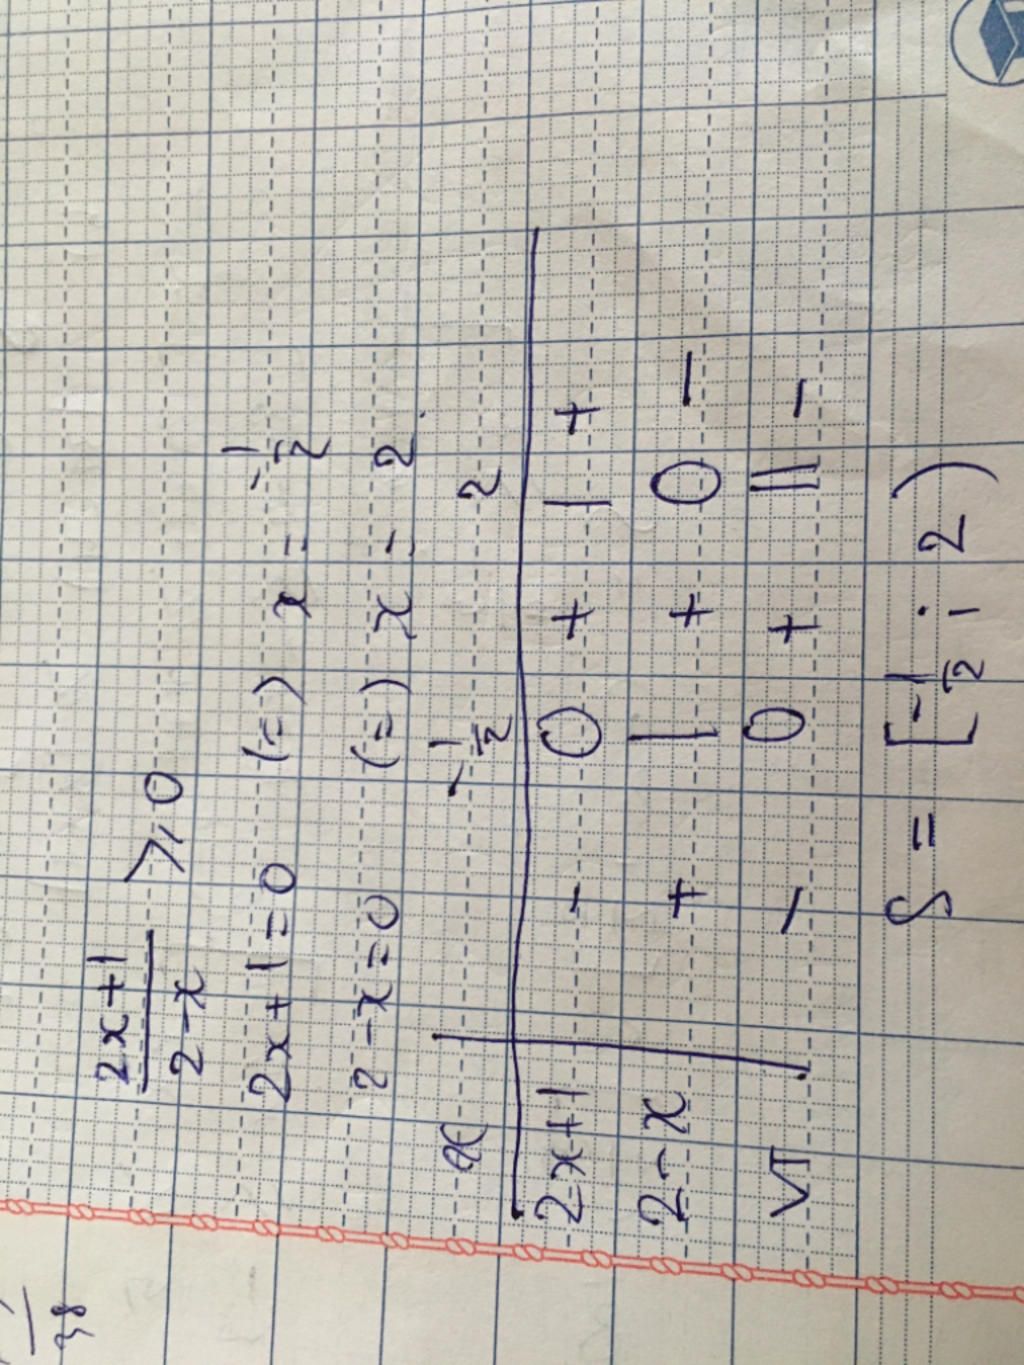 38
2x+1/2-x ⩾ 0
2x+1=0 (=) x = -1/2
2-x=0 (=) x = 2.
x -1/2 2
2x+1 - 0 + | +
2-x + | + 0 -
VT - 0 + || -
S = [-1/2; 2)